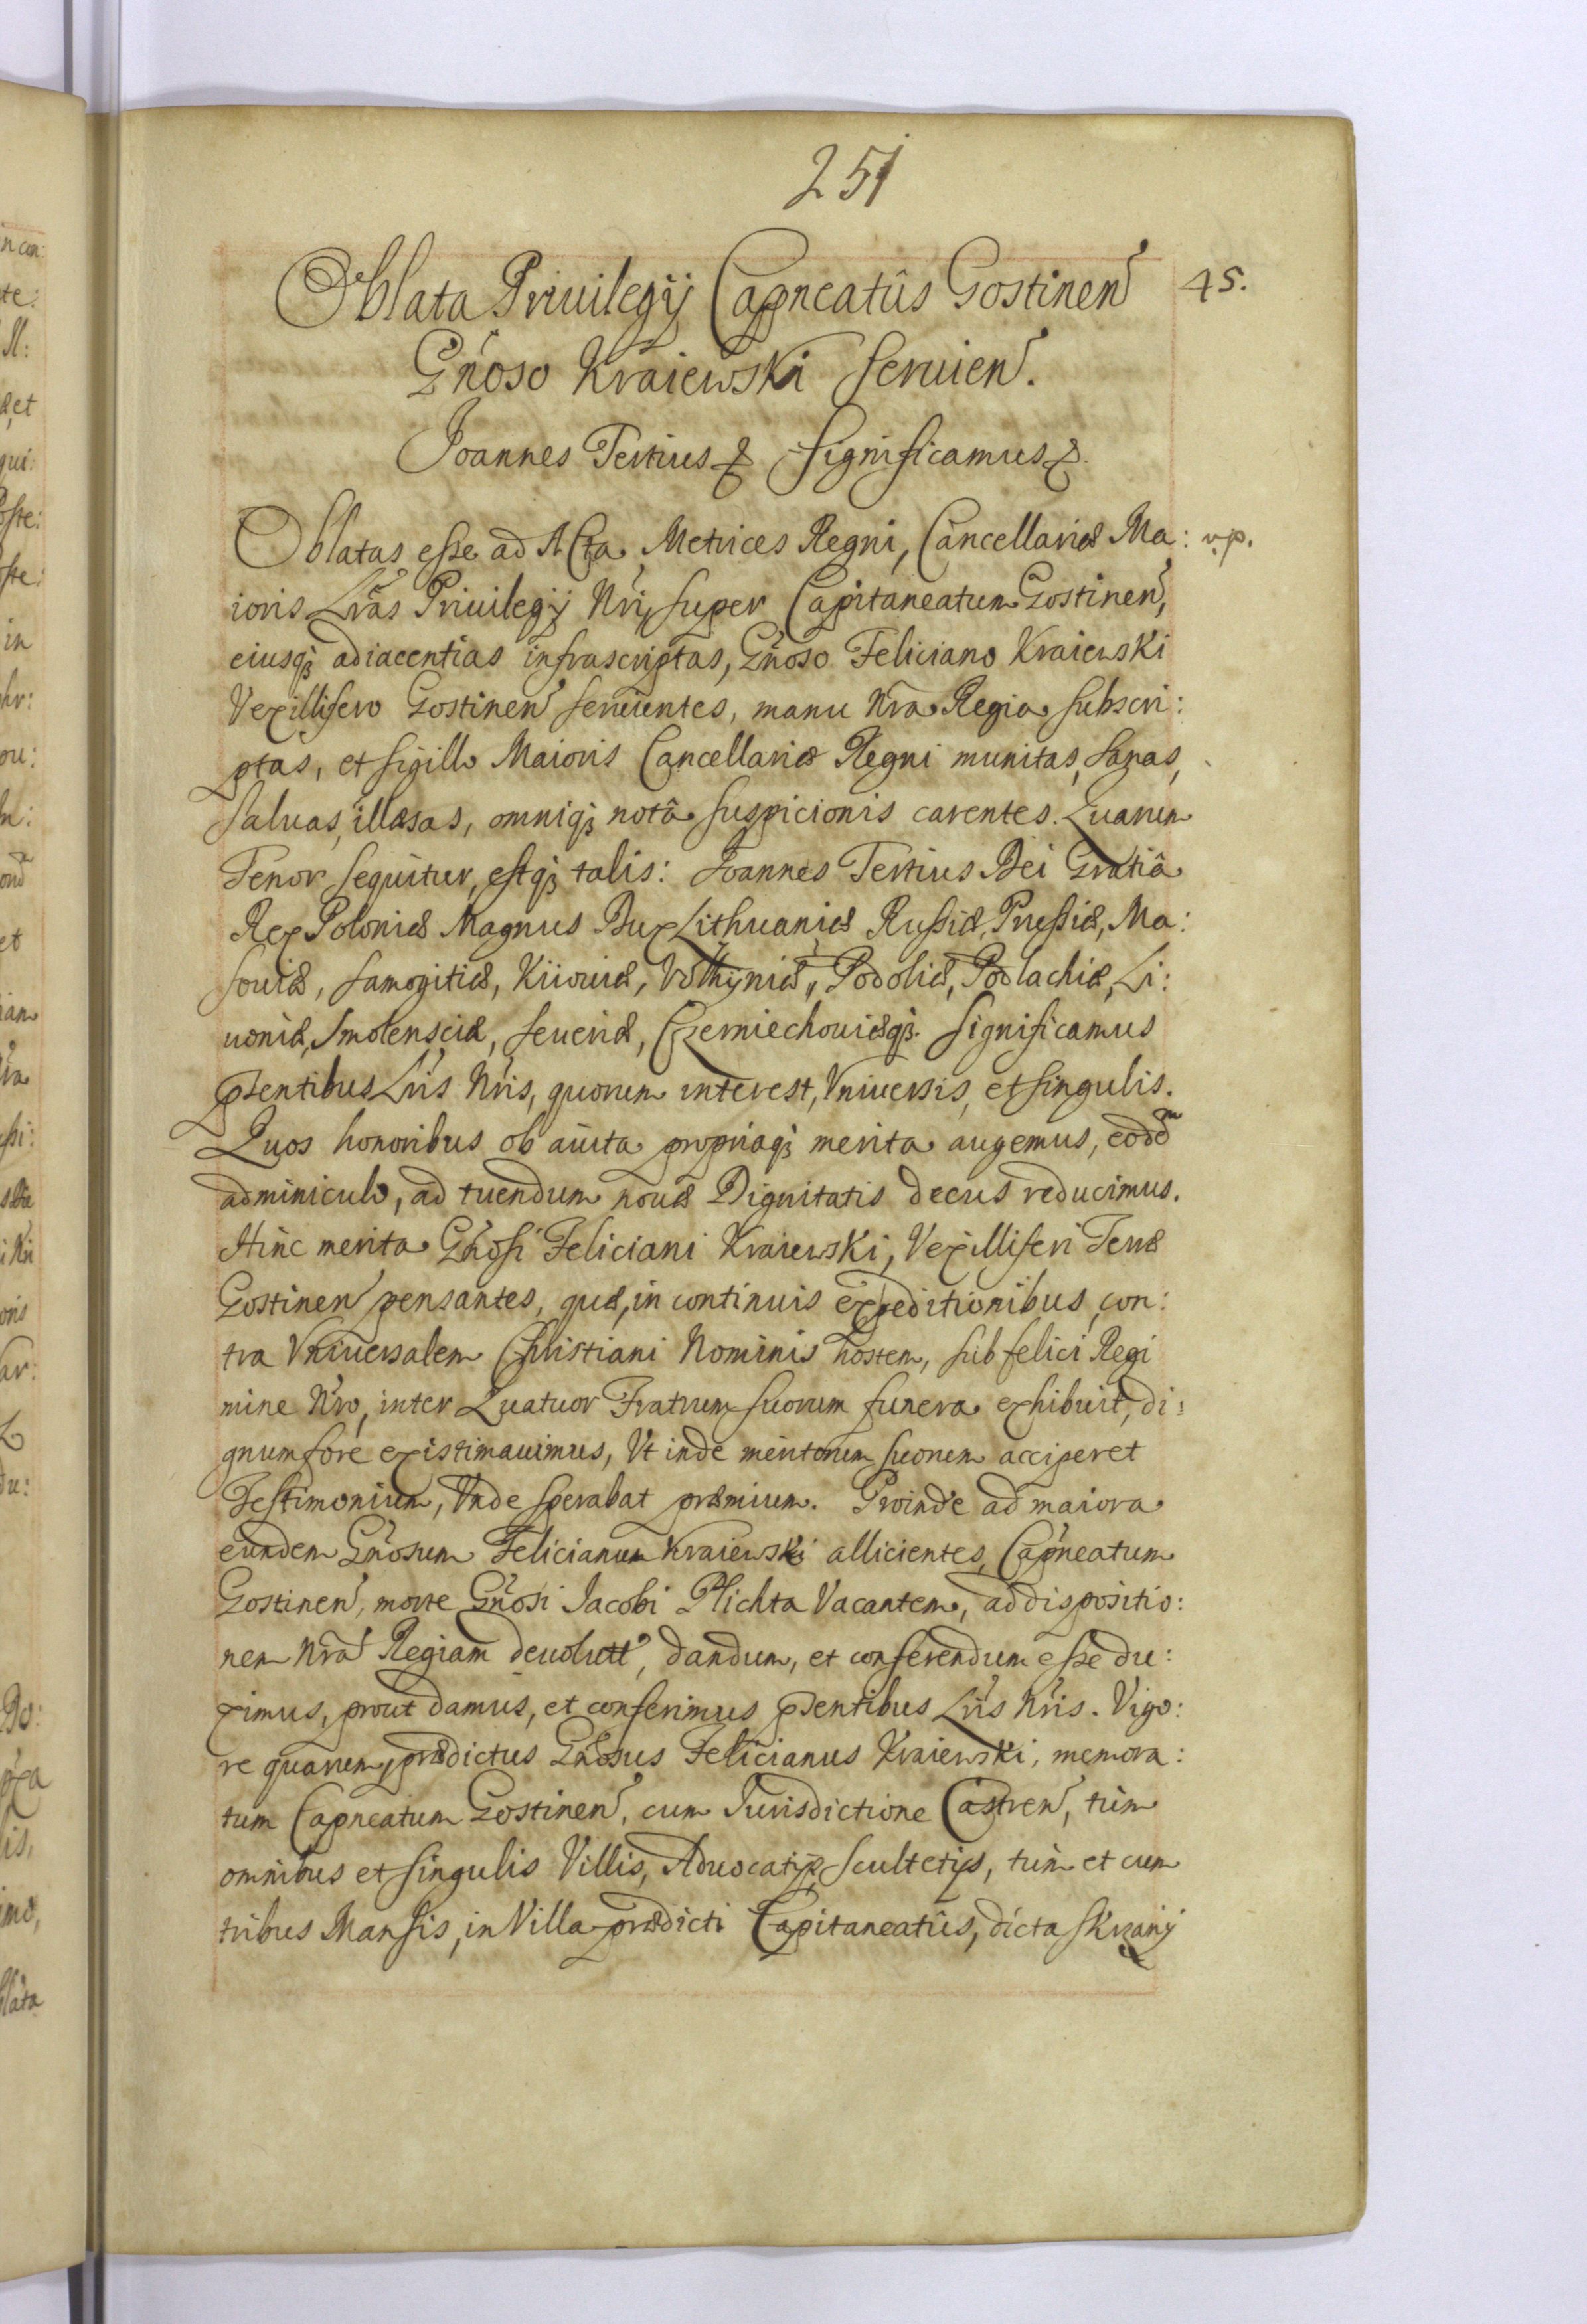 251
Oblata Priuilegij Capneatûs Gostinen̉ 45.
Gn̉oso Kraiewski seruien̉.
Joannes Tertius &c significamus &c.
Oblatas esse ad Acta Metrices Regni, Cancellariæ Ma: v.p.
ioris Lr̃as Priuilegij Nr̃i, super Capitaneatum Gostinen̉,
eiusq3 adiacentias infrascriptas, Gn̉oso Feliciano Kraiewski
Vexillifero Gostinen̉ seruientes, manu Nr̃a Regia subscri:
ptas, et sigillo Maioris Cancellariæ Regni munitas, sanas,
saluas, illæsas, omniq3 notâ suspicionis carentes. Quarum
Tenor sequitur, estq3 talis: Joannes Tertius Dei Gratiâ
Rex Poloniæ Magnus Dux Lithuaniæ Russiæ, Prussiæ, Ma:
souiæ, samogitiæ, Kiiouiæ, Vołhyniæ, Podoliæ, Podlachiæ, Li:
uoniæ, Smolensciæ, seueriæ, Czerniechouiæq3. significamus
p̃sentibus Lr̃is Nr̃is, quorum interest, Vniuersis, et singulis.
Quos honoribus ob auita propriaq3 merita augemus, eodẽm
adminiculo, ad tuendum nouæ Dignitatis decus reducimus.
Hinc merita Gn̉osi Feliciani Kraiewski, Vexilliferi Terræ
Gostinen̉ pensantes, quæ, in continuis expeditionibus, con:
tra Vniuersalem Christiani Nominis hostem, sub felici Regi
mine Nr̃o, inter Quatuor Fratrum suorum funera exhibuit, di:
gnum fore existimauimus, Vt inde meritorum suorum acciperet
Testimonium, Vnde sperabat præmium. Proinde ad maiora
eundem Gn̉osum Felicianum Kraiewski allicientes, Capneatum
Gostinen̉, morte Gn̉osi Jacobi Plichta Vacantem, ad dispositio:
nem Nr̃ã Regiam deuolutũ, dandum, et conferendum esse du:
ximus, prout damus, et conferimus p̃sentibus Lr̃is Nr̃is. Vigo:
re quarum, prædictus Gn̉osus Felicianus Kraiewski, memora:
tum Capneatum Gostinen̉, cum Jurisdictione Castren̉, tùm
omnibus et singulis Villis, Aduocatijs, scultetijs, tùm et cum
tribus Mansis, in Villa prædicti Capitaneatûs, dicta Skrzany